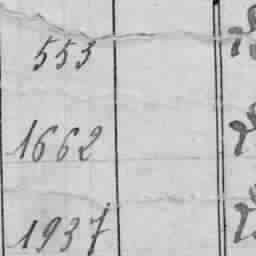 553
1662
1937